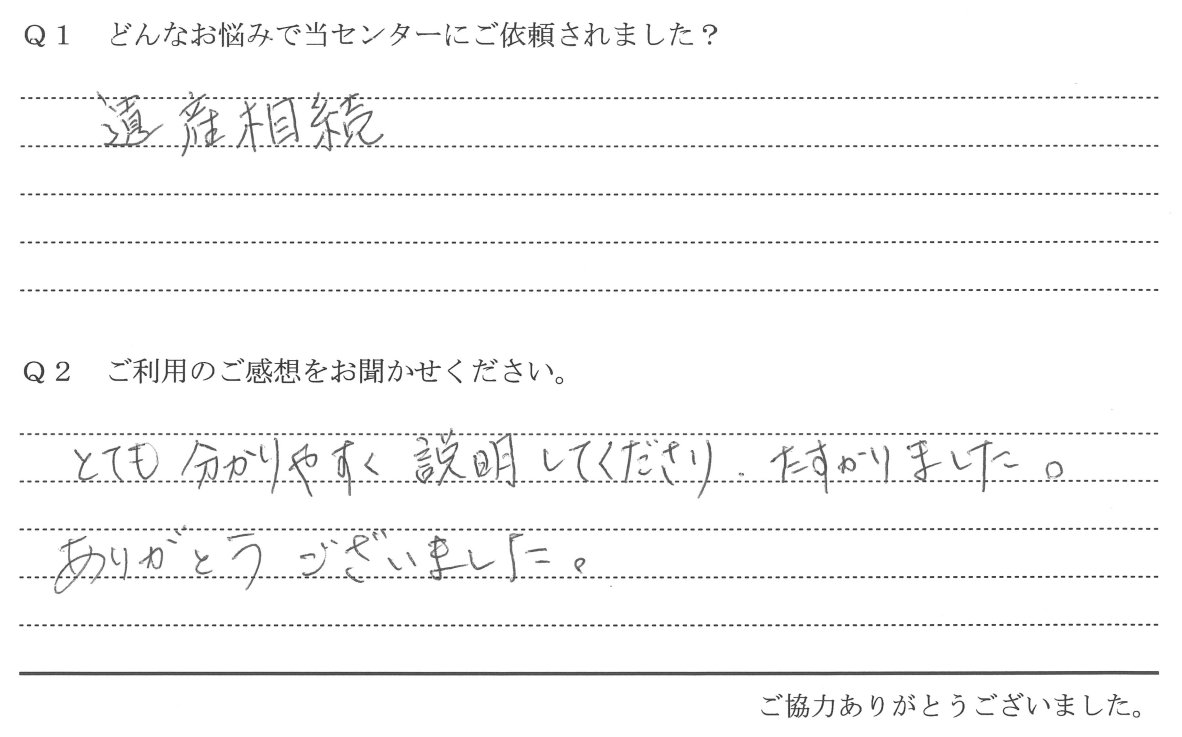 Q1 どんなお悩みで当センターにご依頼されました？
遺産相続
Q2 ご利用のご感想をお聞かせください。
とても分かりやすく説明してくださり、たすかりました。
ありがとうございました。
ご協力ありがとうございました。